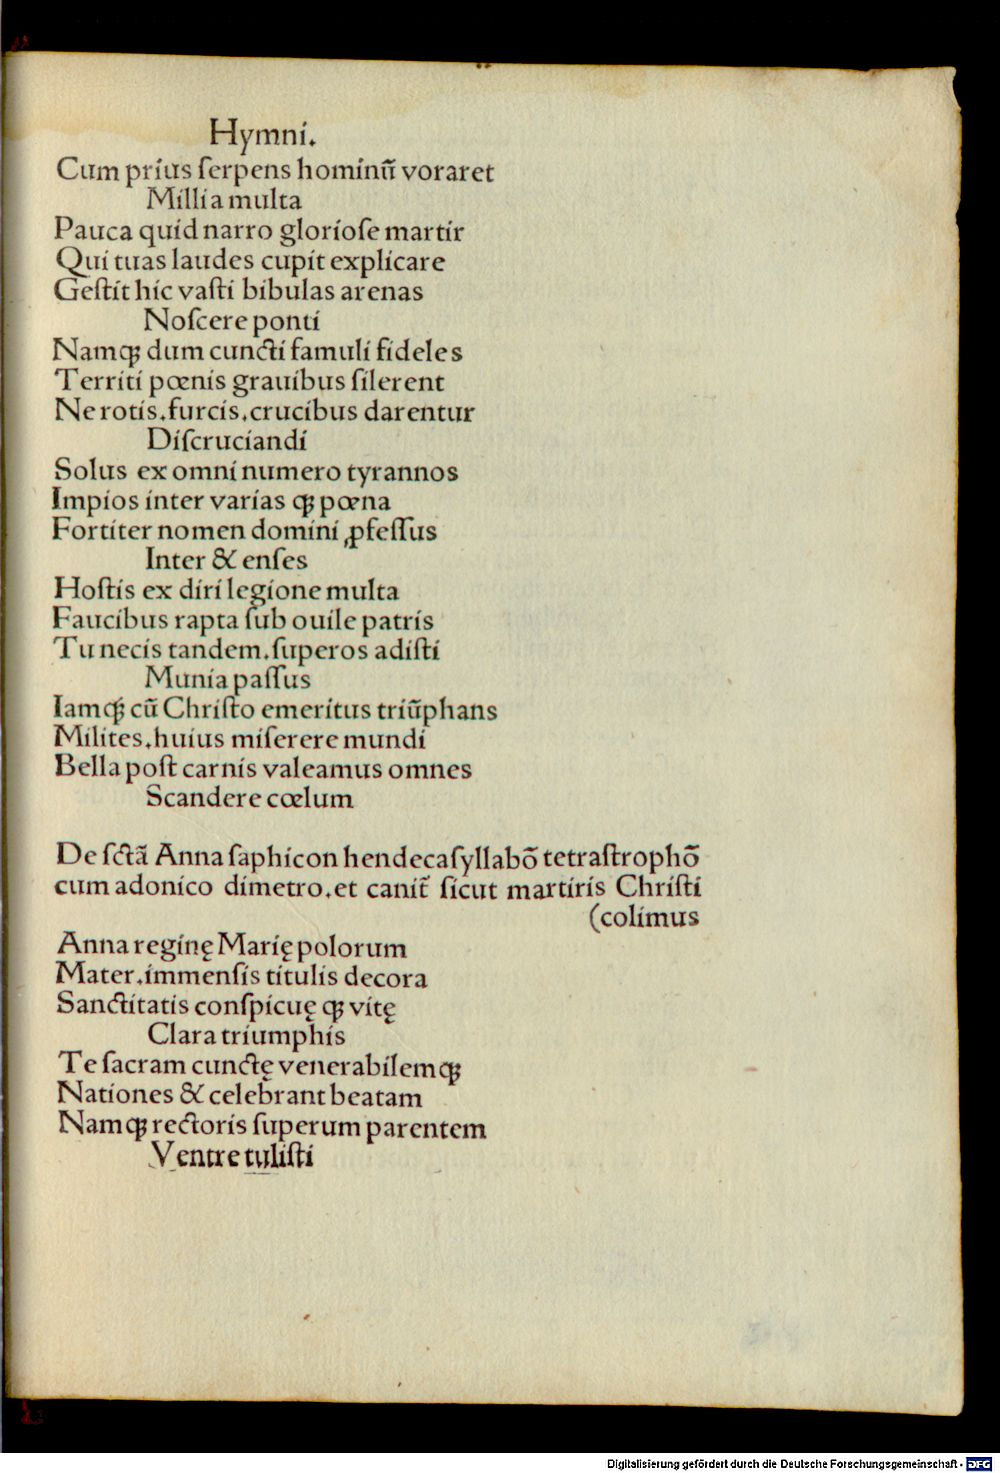 Hymni.
Cum prius ſerpens hominū voraret
Millia multa
Pauca quid narro glorioſe martir
Qui tuas laudes cupit explicare
Geſtit hic vaſti bibulas arenas
Noſcere ponti
Namqꝫ dum cuncti famuli fideles
Territi pœnis grauibus ſilerent
Ne rotis.furcis.crucibus darentur
Diſcruciandi
Solus ex omni numero tyrannos
Impios inter varias qꝫ pœna
Fortiter nomen domini ꝓfeſſus
Inter & enſes
Hoſtis ex diri legione multa
Faucibus rapta ſub ouile patris
Tu necis tandem.ſuperos adiſti
Munia paſſus
Iamqꝫ cū Chriſto emeritus triūphans
Milites.huius miſerere mundi
Bella poſt carnis valeamus omnes
Scandere cœlum
De ſctā Anna ſaphicon hendecaſyllabō tetraſtrophō
cum adonico dimetro.et canit̄ ſicut martiris Chriſti
(colimus
Anna reginę Marię polorum
Mater.immenſis titulis decora
Sanctitatis conſpicuę qꝫ vitę
Clara triumphis
Te ſacram cunctę venerabilemqꝫ
Nationes & celebrant beatam
Namqꝫ rectoris ſuperum parentem
Ventre tuliſti
Digitalisierung gefördert durch die Deutsche Forschungsgemeinschaft - DFG